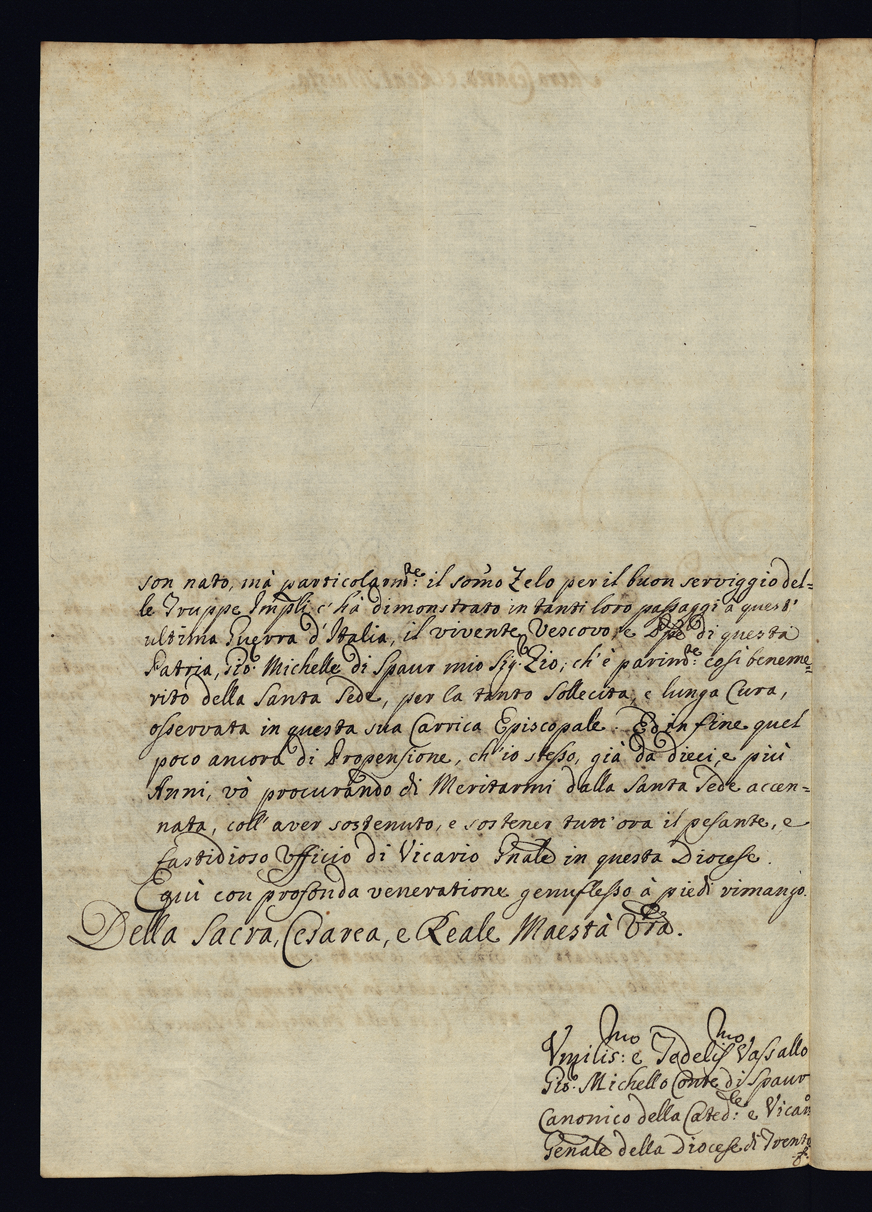 son nato, mà particolarm:te il som̃o Zelo per il buon serviggio del=
le Truppe Impli; c'hà dimonstrato in tanti loro passaggi à quest'
ultima Guerra d'Italia, il vivente Vescovo, e Ppe di questa
Patria, Gio: Michelle di Spaur mio Sig:r Zio; ch'è parim:te così beneme=
rito della Santa Sede, per la tanto sollecita, e lunga Cura,
osservata in questa sua Carrica Episcopale: Ed in fine quel
poco ancora di Propensione, ch'io stesso, già da dieci, e più
Anni, vò procurando di Meritarmi dalla Santa Sede accen=
nata, coll'aver sostenuto, e sostener tutt'ora il pesante, e
fastidioso Ufficio di Vicario Gnale in questa Diocese.
E quì con profonda veneratione genuflesso à piedi rimango.
Della Sacra, Cesarea, e Reale Maestà Vra.
Umilis:mo e Fedelis:mo Vassallo
Gio: Michello Conte di Spaur
Canonico della Cated:le e Vicario
Genale della Diocese di Trento